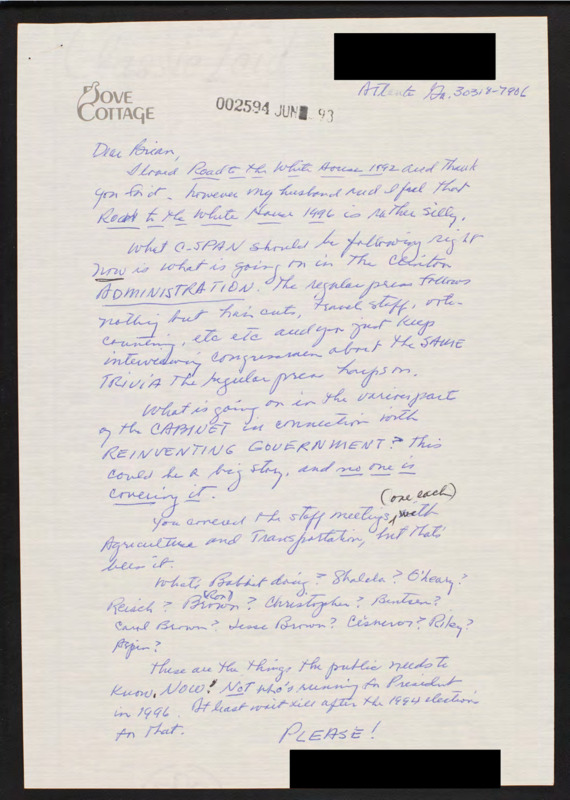 DOVE
COTTAGE
002594 JUN 93
Atlanta Ga. 30318-7906
Dear Brian,
I loved Road to the White House 1992 and thank
you for it. However my husband and I feel that
Road to the White House 1996 is rather silly.
What C-SPAN should be following right
now is what is going on in the Clinton
ADMINISTRATION. The regular press follows
nothing but hair cuts, travel staff, vote
counting, etc etc and you just keep
interviewing congressmen about the SAME
TRIVIA the regular press harps on.
What is going on in the various part
of the CABINET in connection with
REINVENTING GOVERNMENT? This
could be a big story, and no one is
covering it.
(one each)
You covered the staff meetings with
Agriculture and Transportation, but that's
been it.
What's Babbit doing? Shalala? O'Leary?
(Ron)
Reisch? Brown? Christopher? Bentsen?
Carol Brown? Jesse Brown? Cisneros? Riley?
Aspin?
These are the things the public needs to
know, NOW! NOT who's running for President
in 1996. At least wait till after the 1994 elections
for that.
PLEASE!